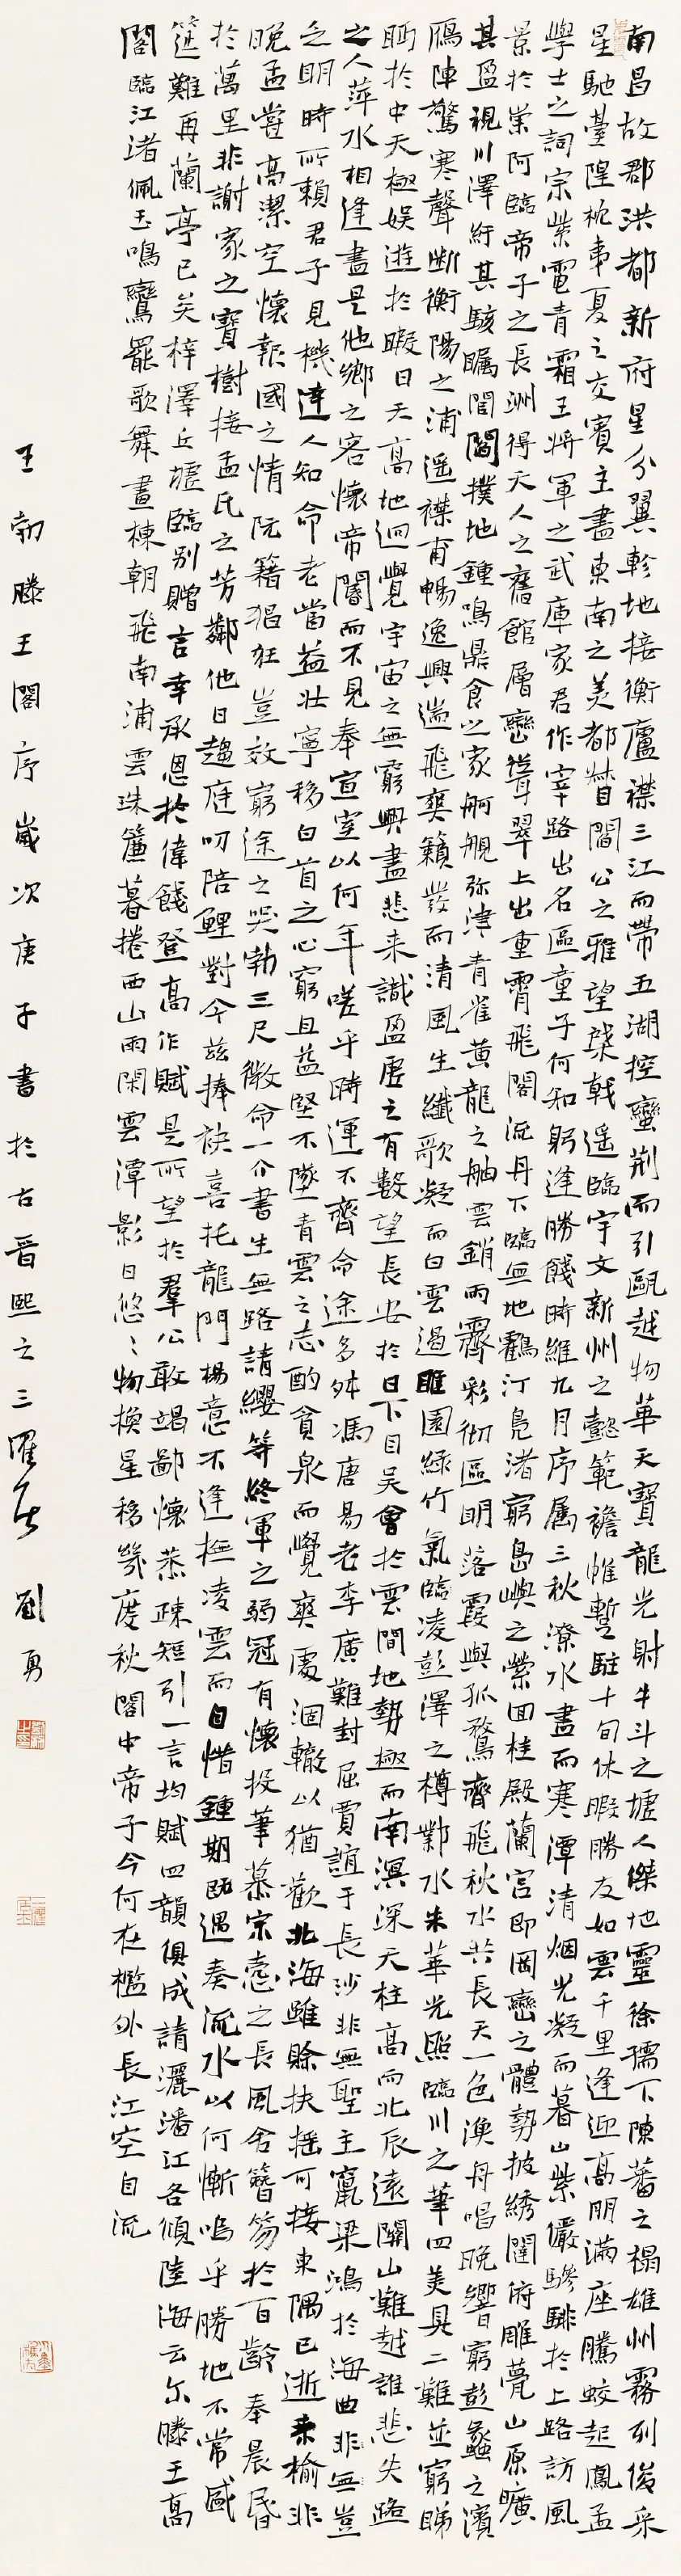 南昌故郡洪都新府星分翼軫地接衡廬襟三江而帶五湖控蠻荊而引甌越物華天寶龍光射牛斗之墟人傑地靈徐孺下陳蕃之榻雄州霧列俊采
星馳臺隍枕夷夏之交賓主盡東南之美都督閻公之雅望棨戟遥臨宇文新州之懿範襜帷暫駐十旬休暇勝友如雲千里逢迎高朋滿座騰蛟起鳳孟
學士之詞宗紫電青霜王將軍之武庫家君作宰路出名區童子何知躬逢勝餞時維九月序属三秋潦水盡而寒潭清烟光凝而暮山紫儼驂騑於上路訪風
景於崇阿臨帝子之長洲得天人之舊館層巒聳翠上出重霄飛閣流丹下臨無地鶴汀鳧渚窮島嶼之縈回桂殿蘭宫即岡巒之體勢披綉闥俯雕甍山原曠
其盈視川澤紆其駭矚閭閻撲地鍾鳴鼎食之家舸艦弥津青雀黄龍之舳雲銷雨霽彩徹區明落霞與孤鶩齊飛秋水共長天一色漁舟唱晚響窮彭蠡之濱
鴈陣驚寒聲斷衡陽之浦遥襟甫暢逸興遄飛爽籟發而清風生纖歌凝而白雲遏睢園緑竹氣臨凌彭澤之樽鄴水朱華光照臨川之筆四美具二難並窮睇
眄於中天極娱遊於暇日天高地迥覺宇宙之無窮興盡悲来識盈虛之有數望長安於日下目吴會於雲間地勢極而南溟深天柱高而北辰遠關山難越誰悲失路
之人萍水相逢盡是他鄉之客懷帝閽而不見奉宣室以何年嗟乎時運不齊命途多舛馮唐易老李廣難封屈賈誼于長沙非無聖主竄梁鴻於海曲非無豈
乏明時所賴君子見機達人知命老當益壯寧移白首之心窮且益堅不墜青雲之志酌貪泉而覺爽處涸轍以猶歡北海雖賒扶摇可接東隅已逝桑榆非
晚孟嘗高潔空懷報國之情阮籍猖狂豈效窮途之哭勃三尺微命一介書生無路請纓等終軍之弱冠有懷投筆慕宗慤之長風舍簪笏於百齡奉晨昏
於萬里非謝家之寶樹接孟氏之芳鄰他日趨庭叨陪鯉對今兹捧袂喜托龍門楊意不逢撫凌雲而自惜鍾期既遇奏流水以何慚嗚乎勝地不常盛
筵難再蘭亭已矣梓澤丘墟臨别贈言幸承恩於偉餞登高作賦是所望於羣公敢竭鄙懷恭疎短引一言均賦四韻俱成請灑潘江各傾陸海云尔滕王高
閣臨江渚佩玉鳴鸞罷歌舞畫棟朝飛南浦雲珠簾暮捲西山雨閑雲潭影日悠〻物換星移幾度秋閣中帝子今何在檻外長江空自流
王勃滕王閣序歲次庚子書於古晉熙之三羅居劉勇